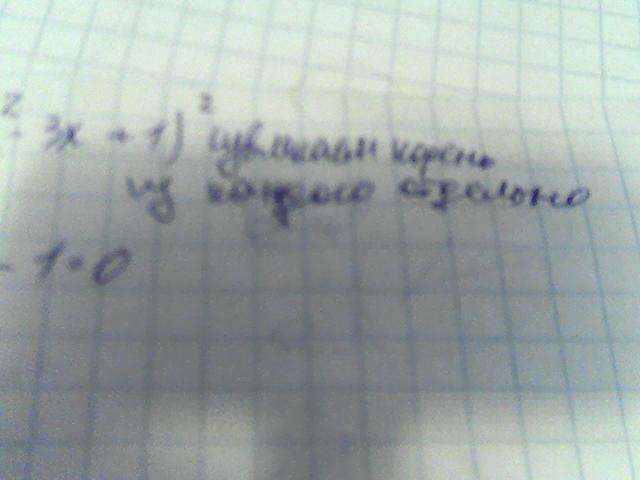 ² - 3x + 1)² извлекаем корень
из каждого отдельно
- 1 = 0